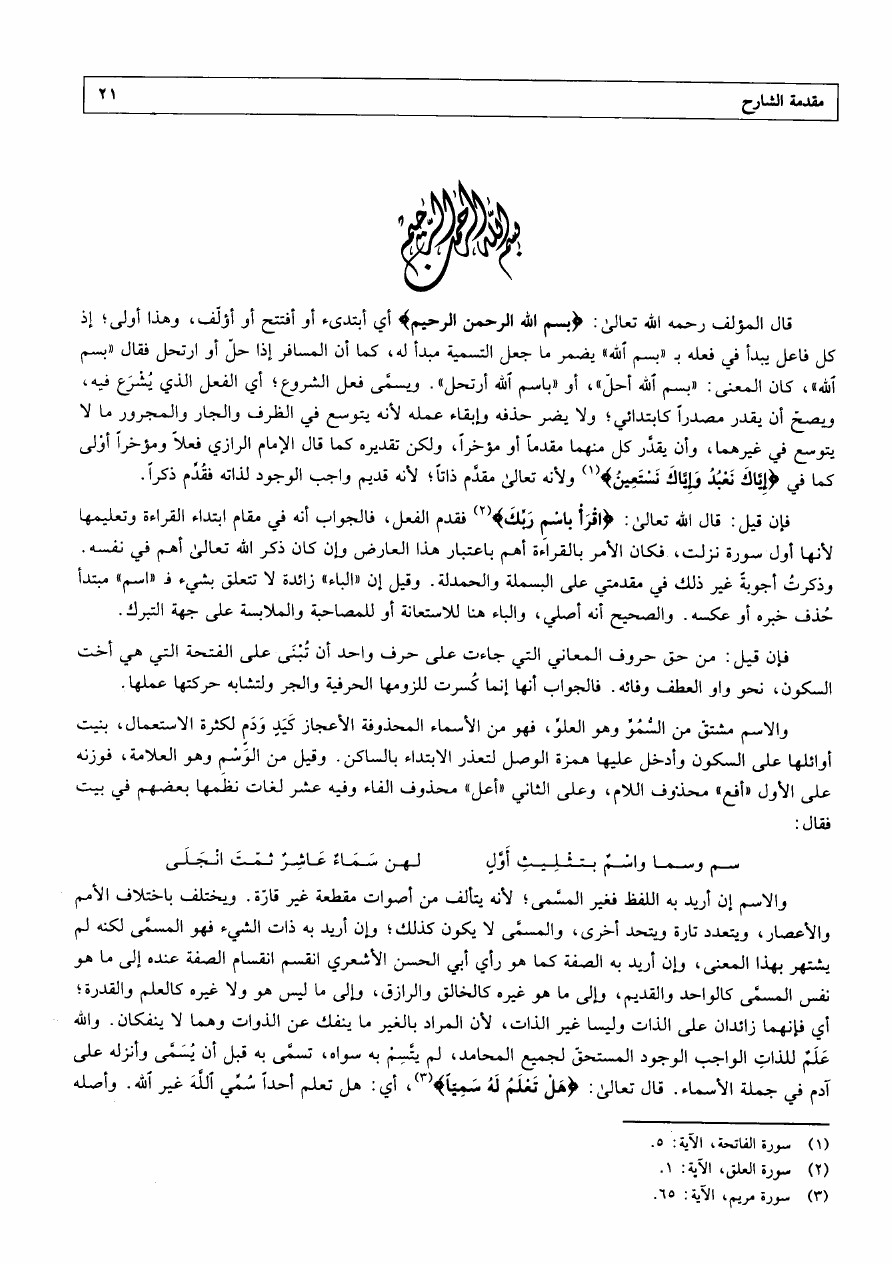 مقدمة الشارح ٢١
بسم الله الرحمن الرحيم
قال المؤلف رحمه الله تعالىٰ: ﴿بسم الله الرحمن الرحيم﴾ أي أبتدىء أو أفتتح أو أؤلّف، وهذا أولى؛ إذ
كل فاعل يبدأ في فعله بـ «بسم ٱلله» يضمر ما جعل التسمية مبدأ له، كما أن المسافر إذا حلّ أو ارتحل فقال «بسم
ٱلله»، كان المعنى: «بسم ٱلله أحلّ»، أو «باسم ٱلله أرتحل». ويسمَّى فعل الشروع؛ أي الفعل الذي يُشْرَع فيه،
ويصحّ أن يقدر مصدراً كابتدائي؛ ولا يضر حذفه وإبقاء عمله لأنه يتوسع في الظرف والجار والمجرور ما لا
يتوسع في غيرهما، وأن يقدَّر كل منهما مقدماً أو مؤخراً، ولكن تقديره كما قال الإمام الرازي فعلاً ومؤخراً أوْلى
كما في ﴿إِيَّاكَ نَعْبُدُ وَإِيَّاكَ نَسْتَعِينُ﴾(١) ولأنه تعالىٰ مقدَّم ذاتاً؛ لأنه قديم واجب الوجود لذاته فقُدِّم ذكراً.
فإن قيل: قال الله تعالىٰ: ﴿اقْرَأْ باسْمِ رَبِّكَ﴾(٢) فقدم الفعل، فالجواب أنه في مقام ابتداء القراءة وتعليمها
لأنها أول سورة نزلت، فكان الأمر بالقراءة أهم باعتبار هذا العارض وإن كان ذكر الله تعالىٰ أهم في نفسه.
وذكرتُ أجوبةً غير ذلك في مقدمتي على البسملة والحمدلة. وقيل إن «الباء» زائدة لا تتعلق بشيء فـ «اسم» مبتدأ
حُذف خبره أو عكسه. والصحيح أنه أصلي، والباء هنا للاستعانة أو للمصاحبة والملابسة على جهة التبرك.
فإن قيل: من حق حروف المعاني التي جاءت على حرف واحد أن تُبْنَى على الفتحة التي هي أخت
السكون، نحو واو العطف وفائه. فالجواب أنها إنما كُسرت للزومها الحرفية والجر ولتشابه حركتها عملها.
والاسم مشتقّ من السُّمُوِّ وهو العلوّ، فهو من الأسماء المحذوفة الأعجاز كَيَدٍ وَدَمٍ لكثرة الاستعمال، بنيت
أوائلها على السكون وأدخل عليها همزة الوصل لتعذر الابتداء بالساكن. وقيل من الوَّسْم وهو العلامة، فوزنه
على الأول «أفع» محذوف اللام، وعلى الثاني «أعل» محذوف الفاء وفيه عشر لغات نظمها بعضهم في بيت
فقال:
سـم وسـمـا واسْـمٌ بـتـثـلـيـثِ أَوَّلٍ لـهـن سَـمَـاءٌ عَـاشِـرٌ ثـمّـتَ انْـجَـلَـى
والاسم إن أريد به اللفظ فغير المسَّمى؛ لأنه يتألف من أصوات مقطعة غير قارّة. ويختلف باختلاف الأمم
والأعصار، ويتعدد تارة ويتحد أخرى، والمسمَّى لا يكون كذلك؛ وإن أريد به ذات الشيء فهو المسمَّى لكنه لم
يشتهر بهذا المعنى، وإن أريد به الصفة كما هو رأي أبي الحسن الأشعري انقسم انقسام الصفة عنده إلى ما هو
نفس المسمَّى كالواحد والقديم، وإلى ما هو غيره كالخالق والرازق، وإلى ما ليس هو ولا غيره كالعلم والقدرة؛
أي فإنهما زائدان على الذات وليسا غير الذات، لأن المراد بالغير ما ينفك عن الذوات وهما لا ينفكان. وٱلله
عَلَمٌ للذاتِ الواجب الوجود المستحقّ لجميع المحامد، لم يتَّسِمْ به سواه، تسمَّى به قبل أن يُسَمَّى وأنزله على
آدم في جملة الأسماء. قال تعالىٰ: ﴿هَلْ تَعْلَمُ لَهُ سَمِيّاً﴾(٣)، أي: هل تعلم أحداً سُمِّي ٱللَّهَ غير ٱلله. وأصله
(١) سورة الفاتحة، الآية: ٥.
(٢) سورة العلق، الآية: ١.
(٣) سورة مريم، الآية: ٦٥.